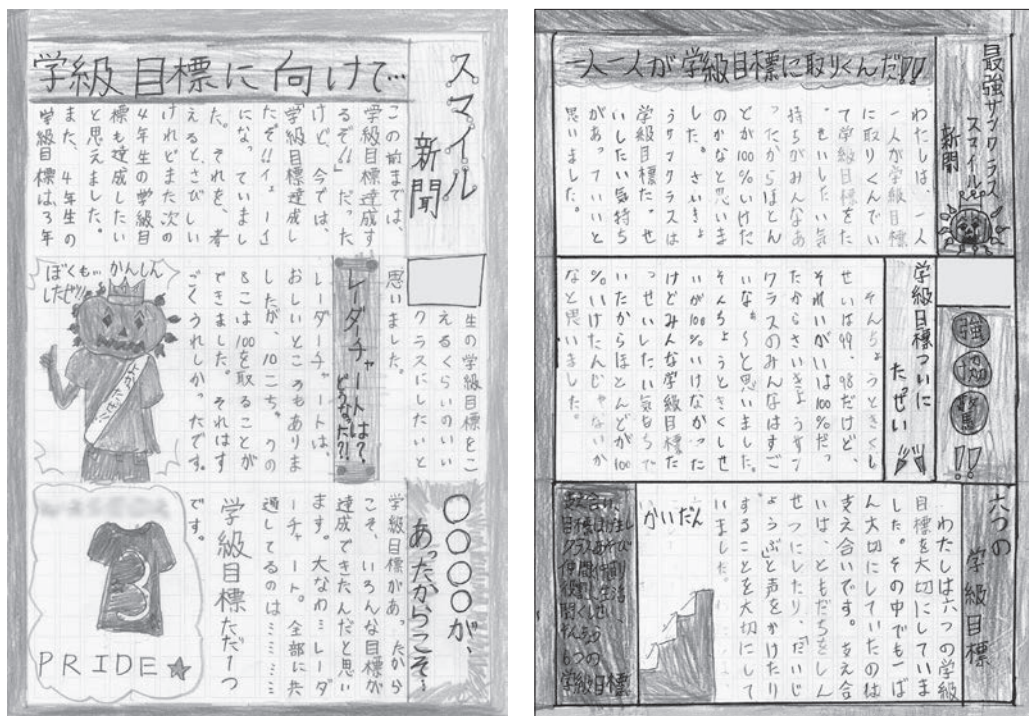 スマイル
新聞
学級目標に向けて…
この前までは、
「学級目標達成す
るぞ!!」だった
けど、今では、
「学級目標達成し
たぞ!!イェーイ」
になっていまし
た。それを、考
えると、さびしい
けれどまた次の
4年生の学級目
標も達成したい
と思えました。
また、4年生の
学級目標は、3年
生の学級目標をこ
えるくらいのいい
クラスにしたいと
思いました。
レーダーチャートは?
どうなった?!
レーダーチャートは、
おしいところもありま
したが、10こちゅうの
8こは100を取ることが
できました。それはす
ごくうれしかったです。
ぼくも… かんしん
したぜ!!
〇〇〇〇が、
あったからこそ〜
学級目標があったから
こそ、いろんな目標が
達成できたんだと思い
ます。大なわ…レーダ
ーチャート。全部に共
通してるのは…………
学級目標ただ1つ
です。
3
PRIDE
最強サンクラス
スマイル
新聞
一人一人が学級目標に取りくんだ!!
わたしは、一人
一人が学級目標
に取りくんでい
て学級目標をた
っせいしたい気
持ちがみんなあ
ったからほとん
どが100%いけた
のかなと思いま
した。さいきょ
うサンクラスは
学級目標たっせ
いしたい気持ち
があっていいと
思いました。
強
協
響
!!
学級目標ついに
たっせい
そんちょうときくし
せいは99、98だけど、
それいがいは100%だっ
たからさいきょうサン
クラスのみんなはすご
いなぁ〜と思いました。
そんちょうときくしせ
いが100%いけなかった
けどみんな学級目標た
っせいしたい気もちで
いたからほとんどが100
%いけたんじゃないか
なと思いました。
六つの
学級目標
わたしは六つの学級
目標を大切にしていま
した。その中でも一ば
ん大切にしていたのは
支え合いです。支え合
いは、ともだちをしん
せつにしたり、「だいじ
ょうぶ」と声をかけたり
することを大切にして
いました。
かいだん
6つの
学級目標